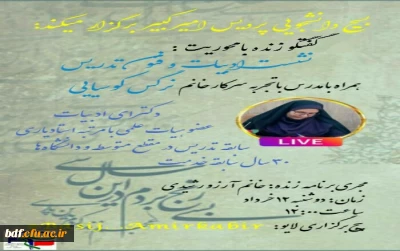 بسیج دانشجویی پردیس امیرکبیر برگزار میکند:
گفتگو زنده بامحوریت :
نشست ادبیات و فن تدریس
همراه بامدرس باتجربه سرکارخانم نرگس گوسیایی
دکترای ادبیات
عضو هیات علمی بامرتبه استادیاری
سابقه تدریس در مقطع متوسطه و دانشگاهها
۳۰ سال سابقه خدمت
LIVE
مجری برنامه زنده: خانم آرزو رشیدی
زمان: دوشنبه ۱۲ خرداد
ساعت ۱۲:۰۰
برگزاری لایو:
Basij_AmirKabir
bdf.cfu.ac.ir